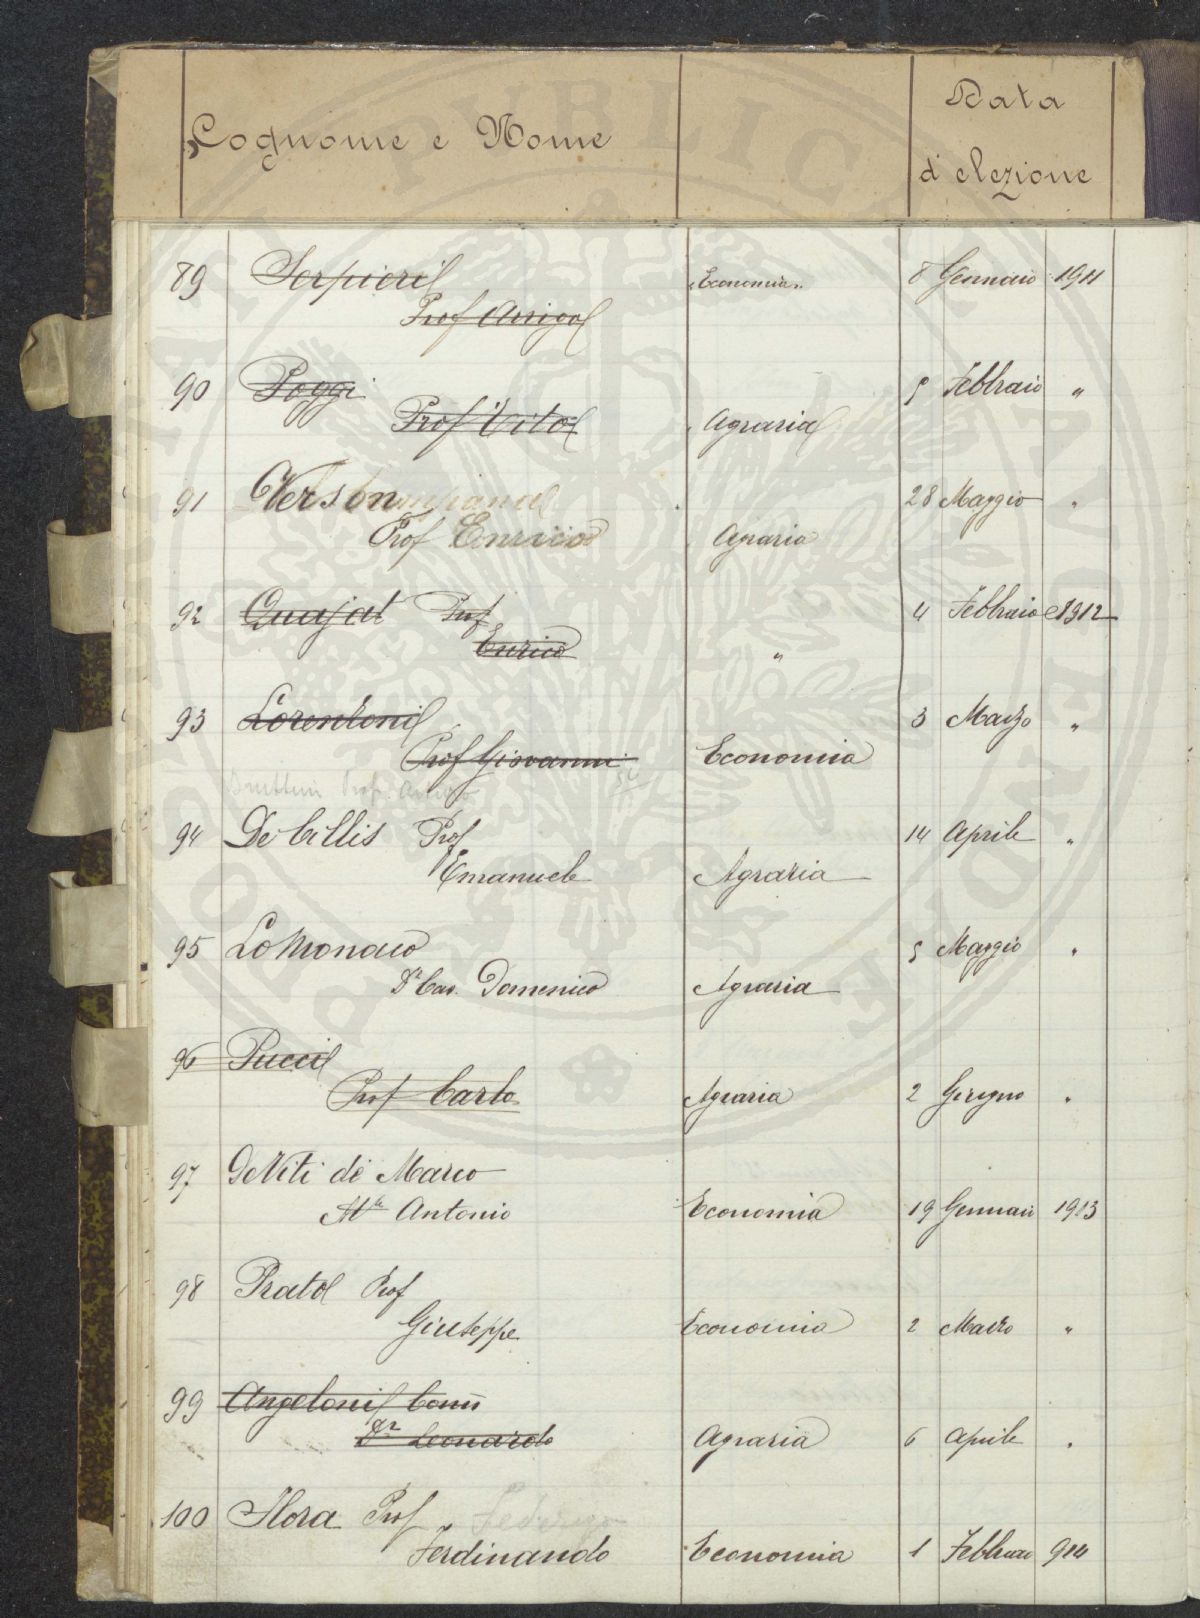 Cognome e Nome
Data
d'elezione
89 Serpieri "Economia" 8 Gennaio 1911
Prof Arrigo
90 Poggi 5 Febbraio "
Prof Vito Agraria
91 Verson 28 Maggio "
Prof Enrico Agraria
92 Quajat Prof 4 Febbraio 1912
Enrico "
93 Lorenzoni 3 Marzo "
Prof Giovanni Economia
Prof. Arrigo
94 De Cillis Prof 14 Aprile "
Emanuele Agraria
95 Lo Monaco 5 Maggio "
Dr Cav. Domenico Agraria
96 Pucci
Prof Carlo Agraria 2 Giugno "
97 De Viti de Marco
Mse Antonio Economia 19 Gennaio 1913
98 Prato Prof
Giuseppe Economia 2 Marzo "
99 Angeloni Comm
Dr Leonardo Agraria 6 Aprile "
100 Flora Prof Federigo
Ferdinando Economia 1 Febbraio 914